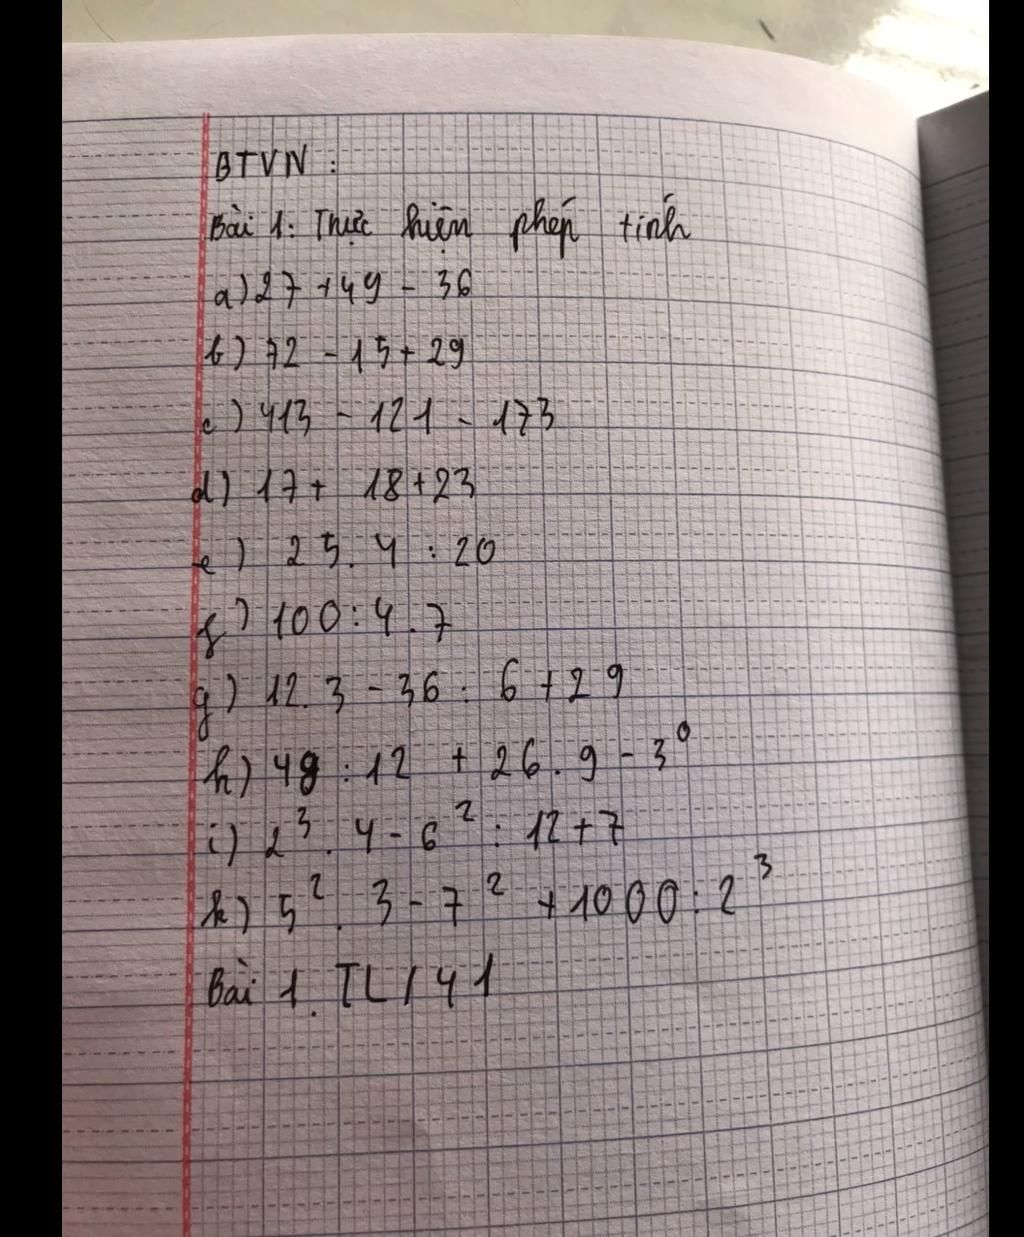 BTVN :
Bài 1: Thực hiện phép tính
a) 27 + 49 - 36
b) 72 - 15 + 29
c) 413 - 121 - 173
d) 17 + 18 + 23
e) 25 . 4 : 20
f) 100 : 4 . 7
g) 12 . 3 - 36 : 6 + 29
h) 48 : 12 + 26 . 9 - 3⁰
i) 2³ . 4 - 6² : 12 + 7
k) 5² . 3 - 7² + 1000 : 2³
Bài 1. TL / 41